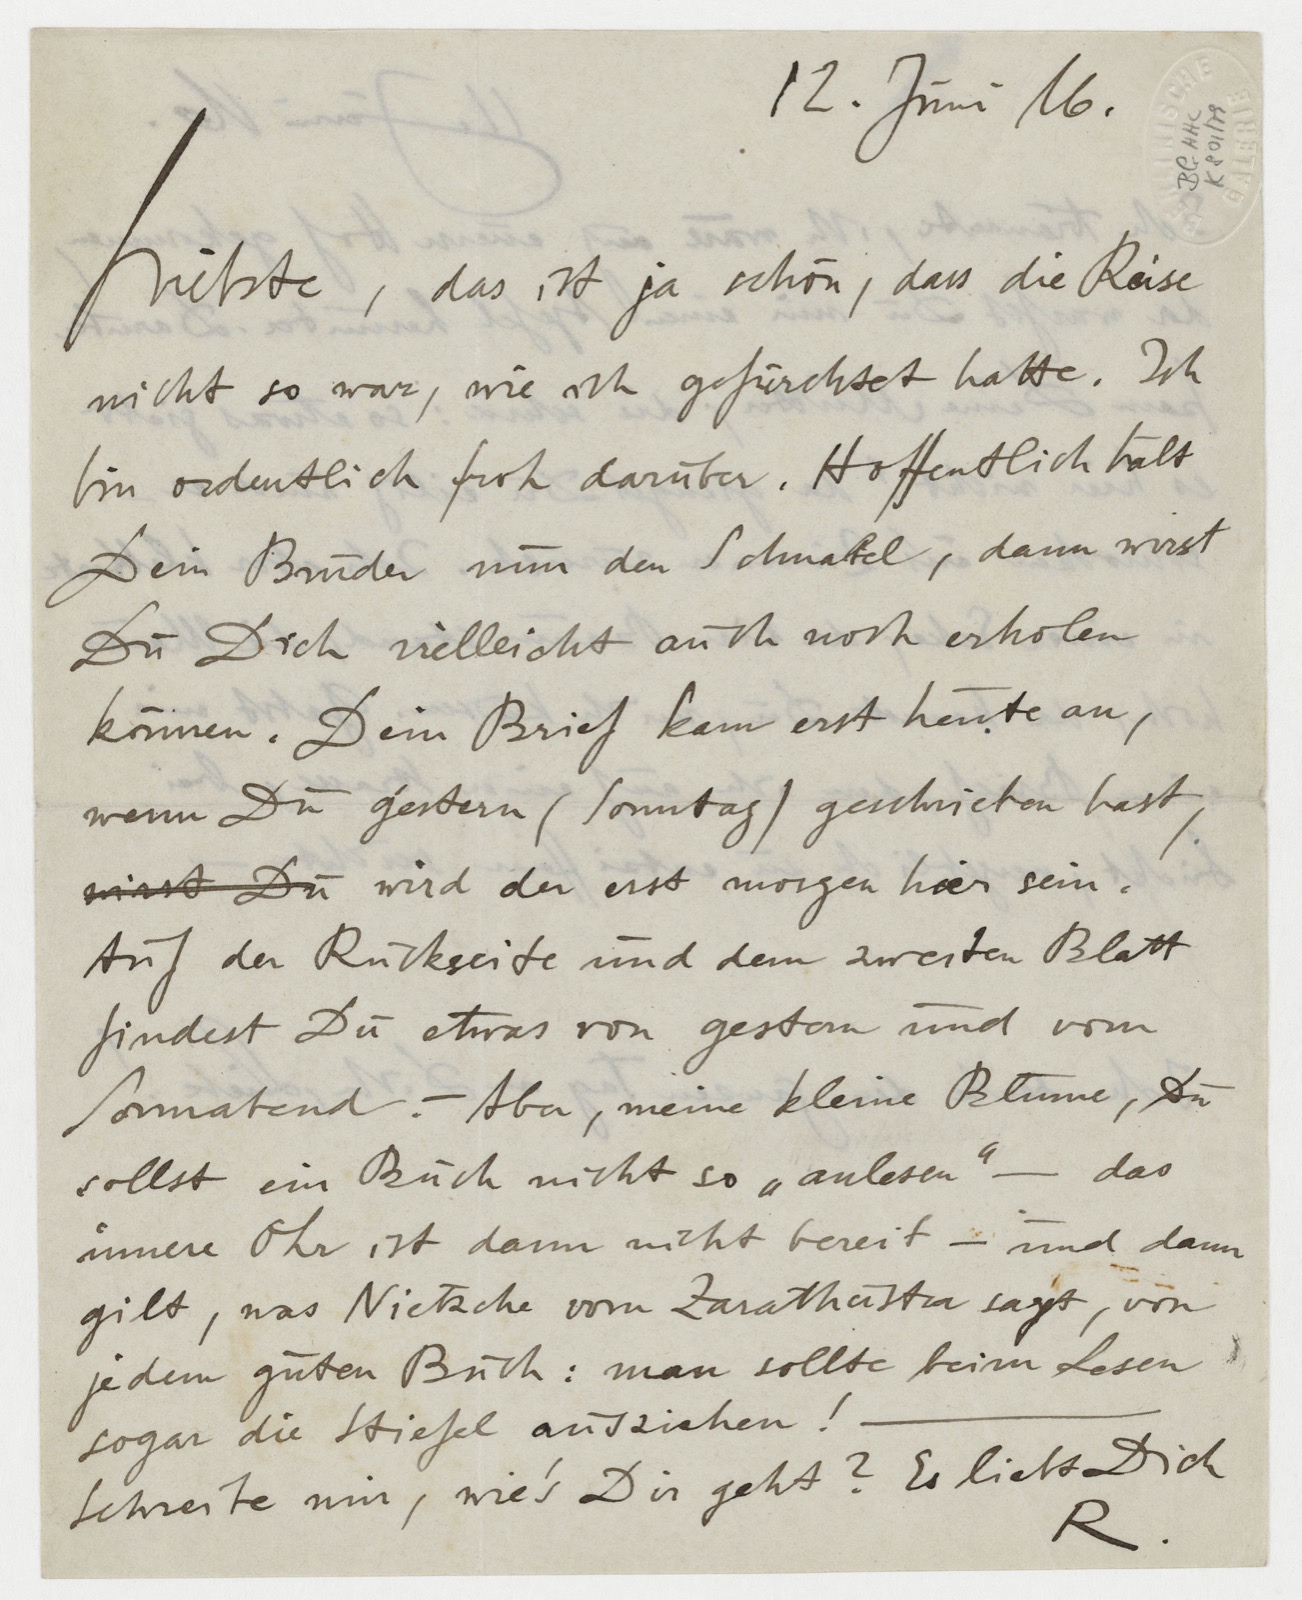 12. Juni 16.
BG-AHC
K 801/79
BERLINISCHE GALERIE
Liebste, das ist ja schön, dass die Reise
nicht so war, wie ich gefürchtet hatte. Ich
bin ordentlich froh darüber. Hoffentlich hält
Dein Bruder nun den Schnabel, dann wirst
Du Dich vielleicht auch noch erholen
können. Dein Brief kam erst heute an,
wenn Du gestern (Sonntag) geschrieben hast,
wirst Du wird der erst morgen hier sein.
Auf der Rückseite und dem zweiten Blatt
findest Du etwas von gestern und vom
Sonnabend. – Aber, meine kleine Blume, Du
sollst ein Buch nicht so „anlesen“ — das
innere Ohr ist dann nicht bereit – und dann
gilt, was Nietzsche vom Zarathustra sagt, von
jedem guten Buch: man sollte beim Lesen
sogar die Stiefel ausziehen! —
Schreibe mir, wie's Dir geht? Es liebt Dich
R.